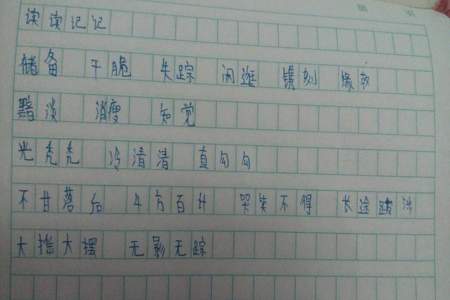 读读记记
储备 干脆 失踪 闲逛 镌刻
黯淡 消瘦 知觉
光秃秃 冷清清 直勾勾
不甘落后 千方百计 哭笑不得 长途跋涉
大摇大摆 无影无踪